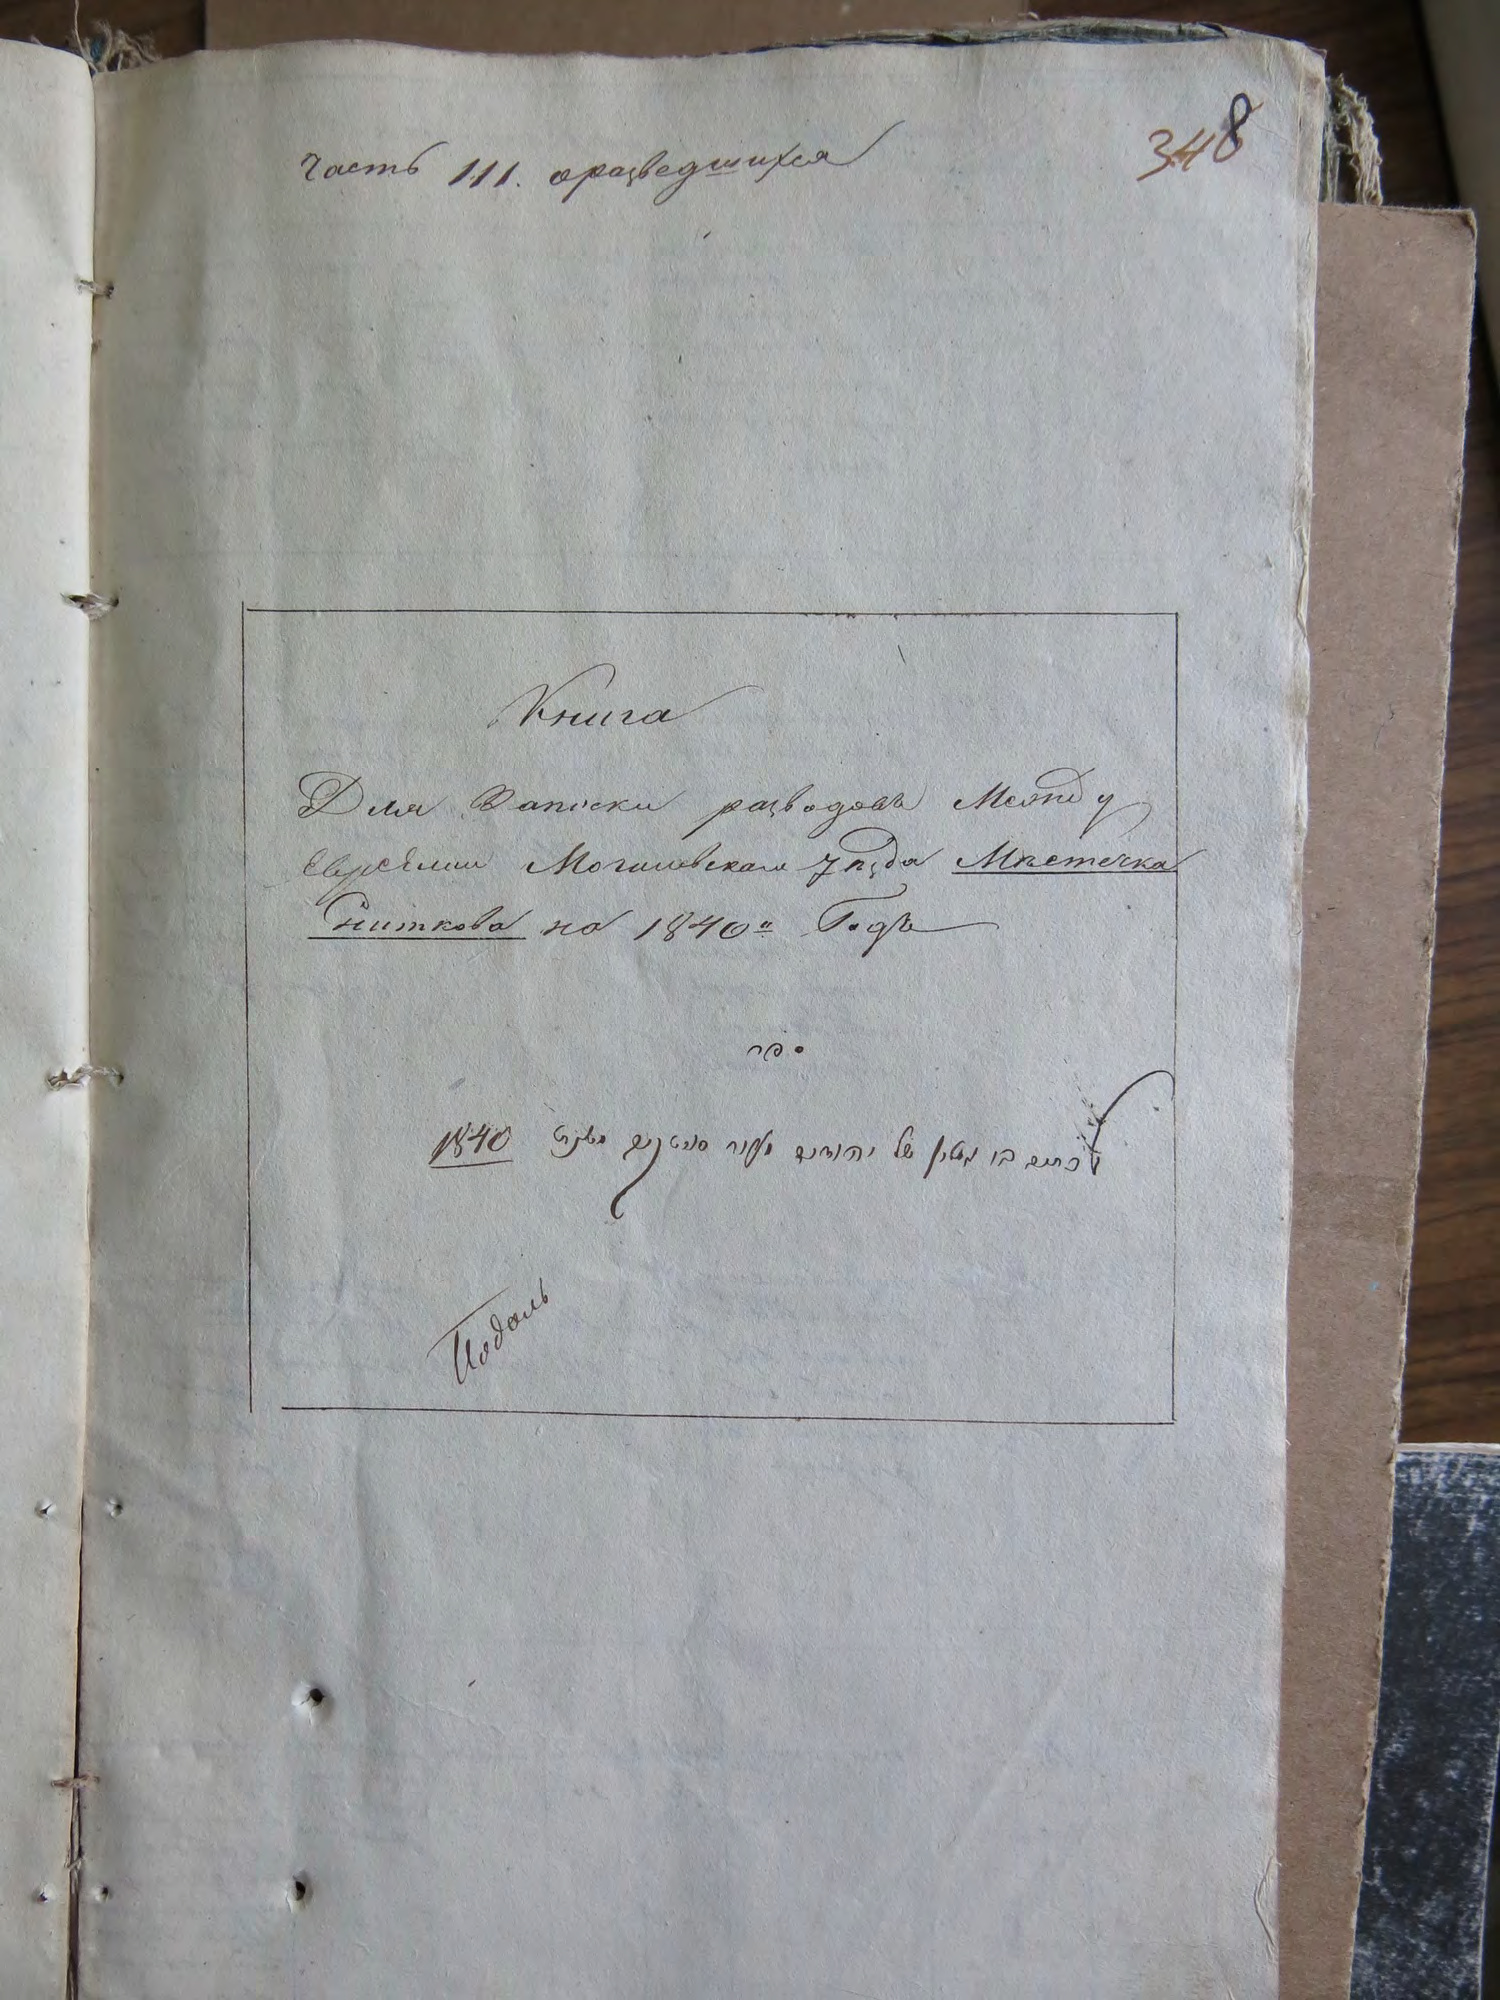 часть III. о разведшихся
348
Книга
Для Записки разводовъ Между
Евреями Могилевскаго Уѣзда Мѣстечка
Сниткова на 1840й Годъ
ספר
של יהודים 1840
Подоль